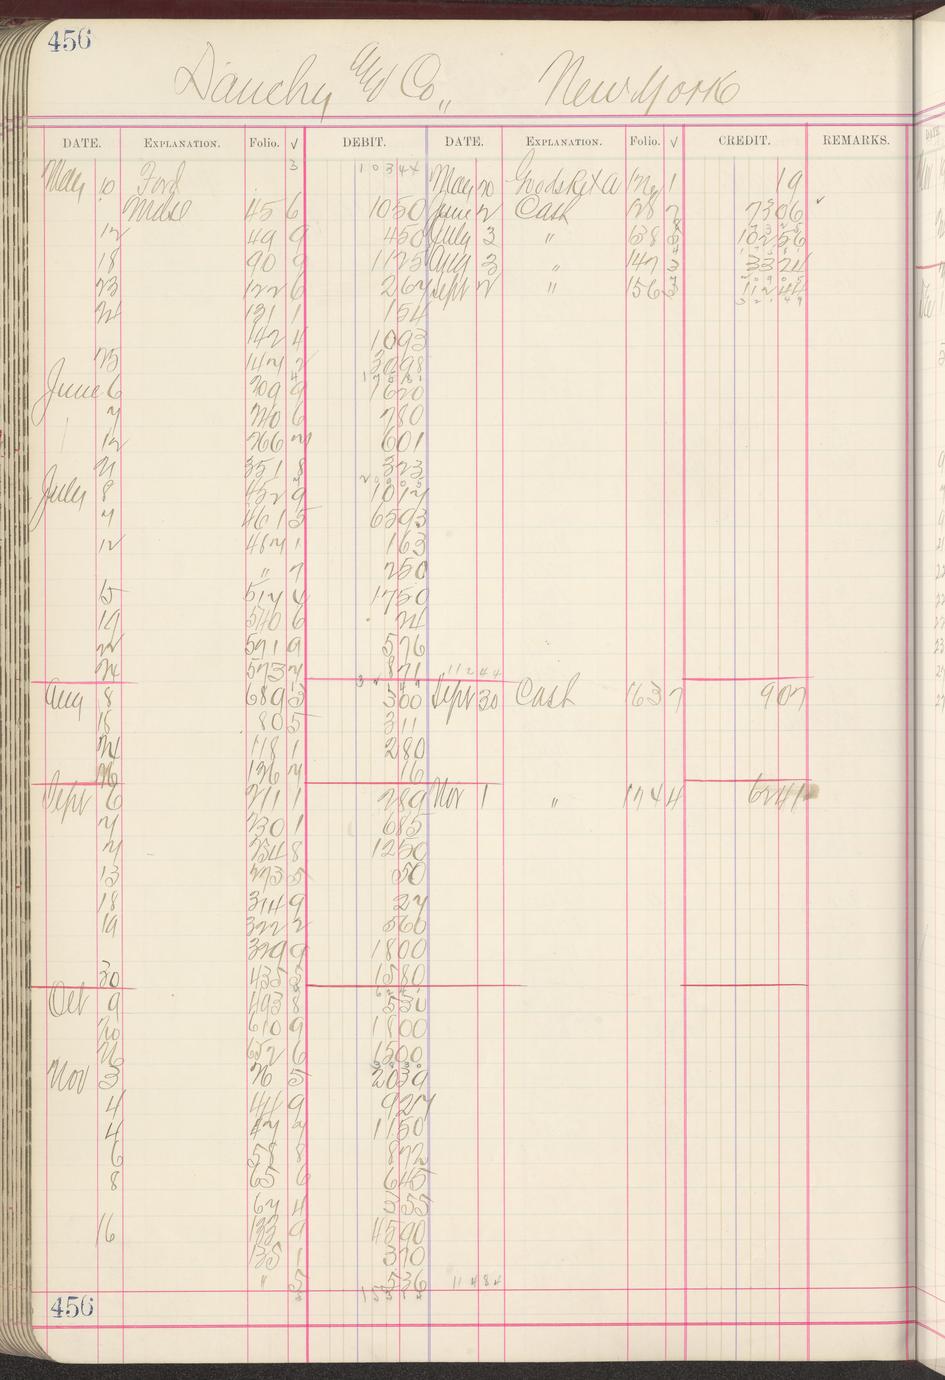 456
Dauchy & Co., New York
DATE. EXPLANATION. Folio. √ DEBIT. DATE. EXPLANATION. Folio. √ CREDIT. REMARKS.
May 10 Ford 3 10344 May 20 Goods Ret A 1 19
Mdse 45 6 1050 June 2 Cash 28 7306
12 49 9 450 July 3 " 638 10256
18 90 9 1125 Aug 3 " 147 3 3324
23 122 6 264 Sept 2 " 156 3 11244
24 131 1 154
142 4 1093
25 147 2 3098
June 6 209 9 1620
7 240 6 780
12 266 7 601
21 351 8 323
July 8 452 9 1017
7 461 5 6593
12 487 1 163
" 7 250
15 517 4 1750
19 540 6 24
22 571 9 576
24 573 7 871 11244
Aug 8 689 3 500 Sept 30 Cash 163 7 907
18 80 5 311
24 118 1 280
26 126 7 16
Sept 6 211 1 289 Nov 1 " 174 4 6241
7 230 1 685
7 234 8 1250
13 273 5 50
18 314 9 27
19 322 2 560
329 9 1800
30 435 1580
Oct 9 493 8 530
20 610 9 1800
26 652 6 1500
Nov 3 26 5 2039
4 44 9 927
4 47 7 1150
6 58 8 872
8 65 6 645
67 4 355
16 133 9 4590
135 1 370
" 5 536 11484
456